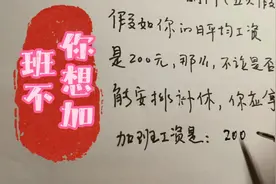 你想加
班不
假如你的日平均工资
是200元，那么，不论是否
能安排补休，你应享
加班工资是：200